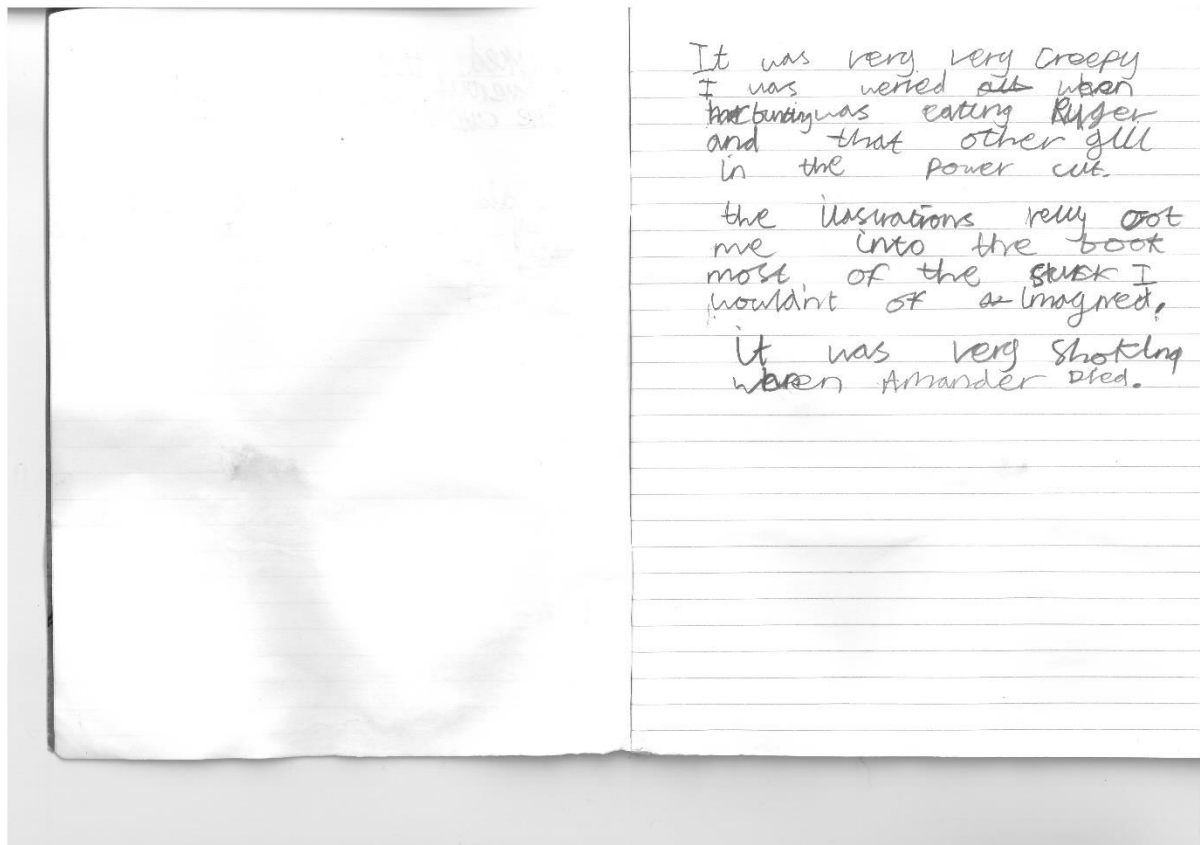 It was very very creepy
I was weried when
was eating Ryger
and that other gill
in the power cut.
the ilustrations relly got
me into the book
most of the I
wouldn't of imagined.
it was very shoking
when Amander Died.